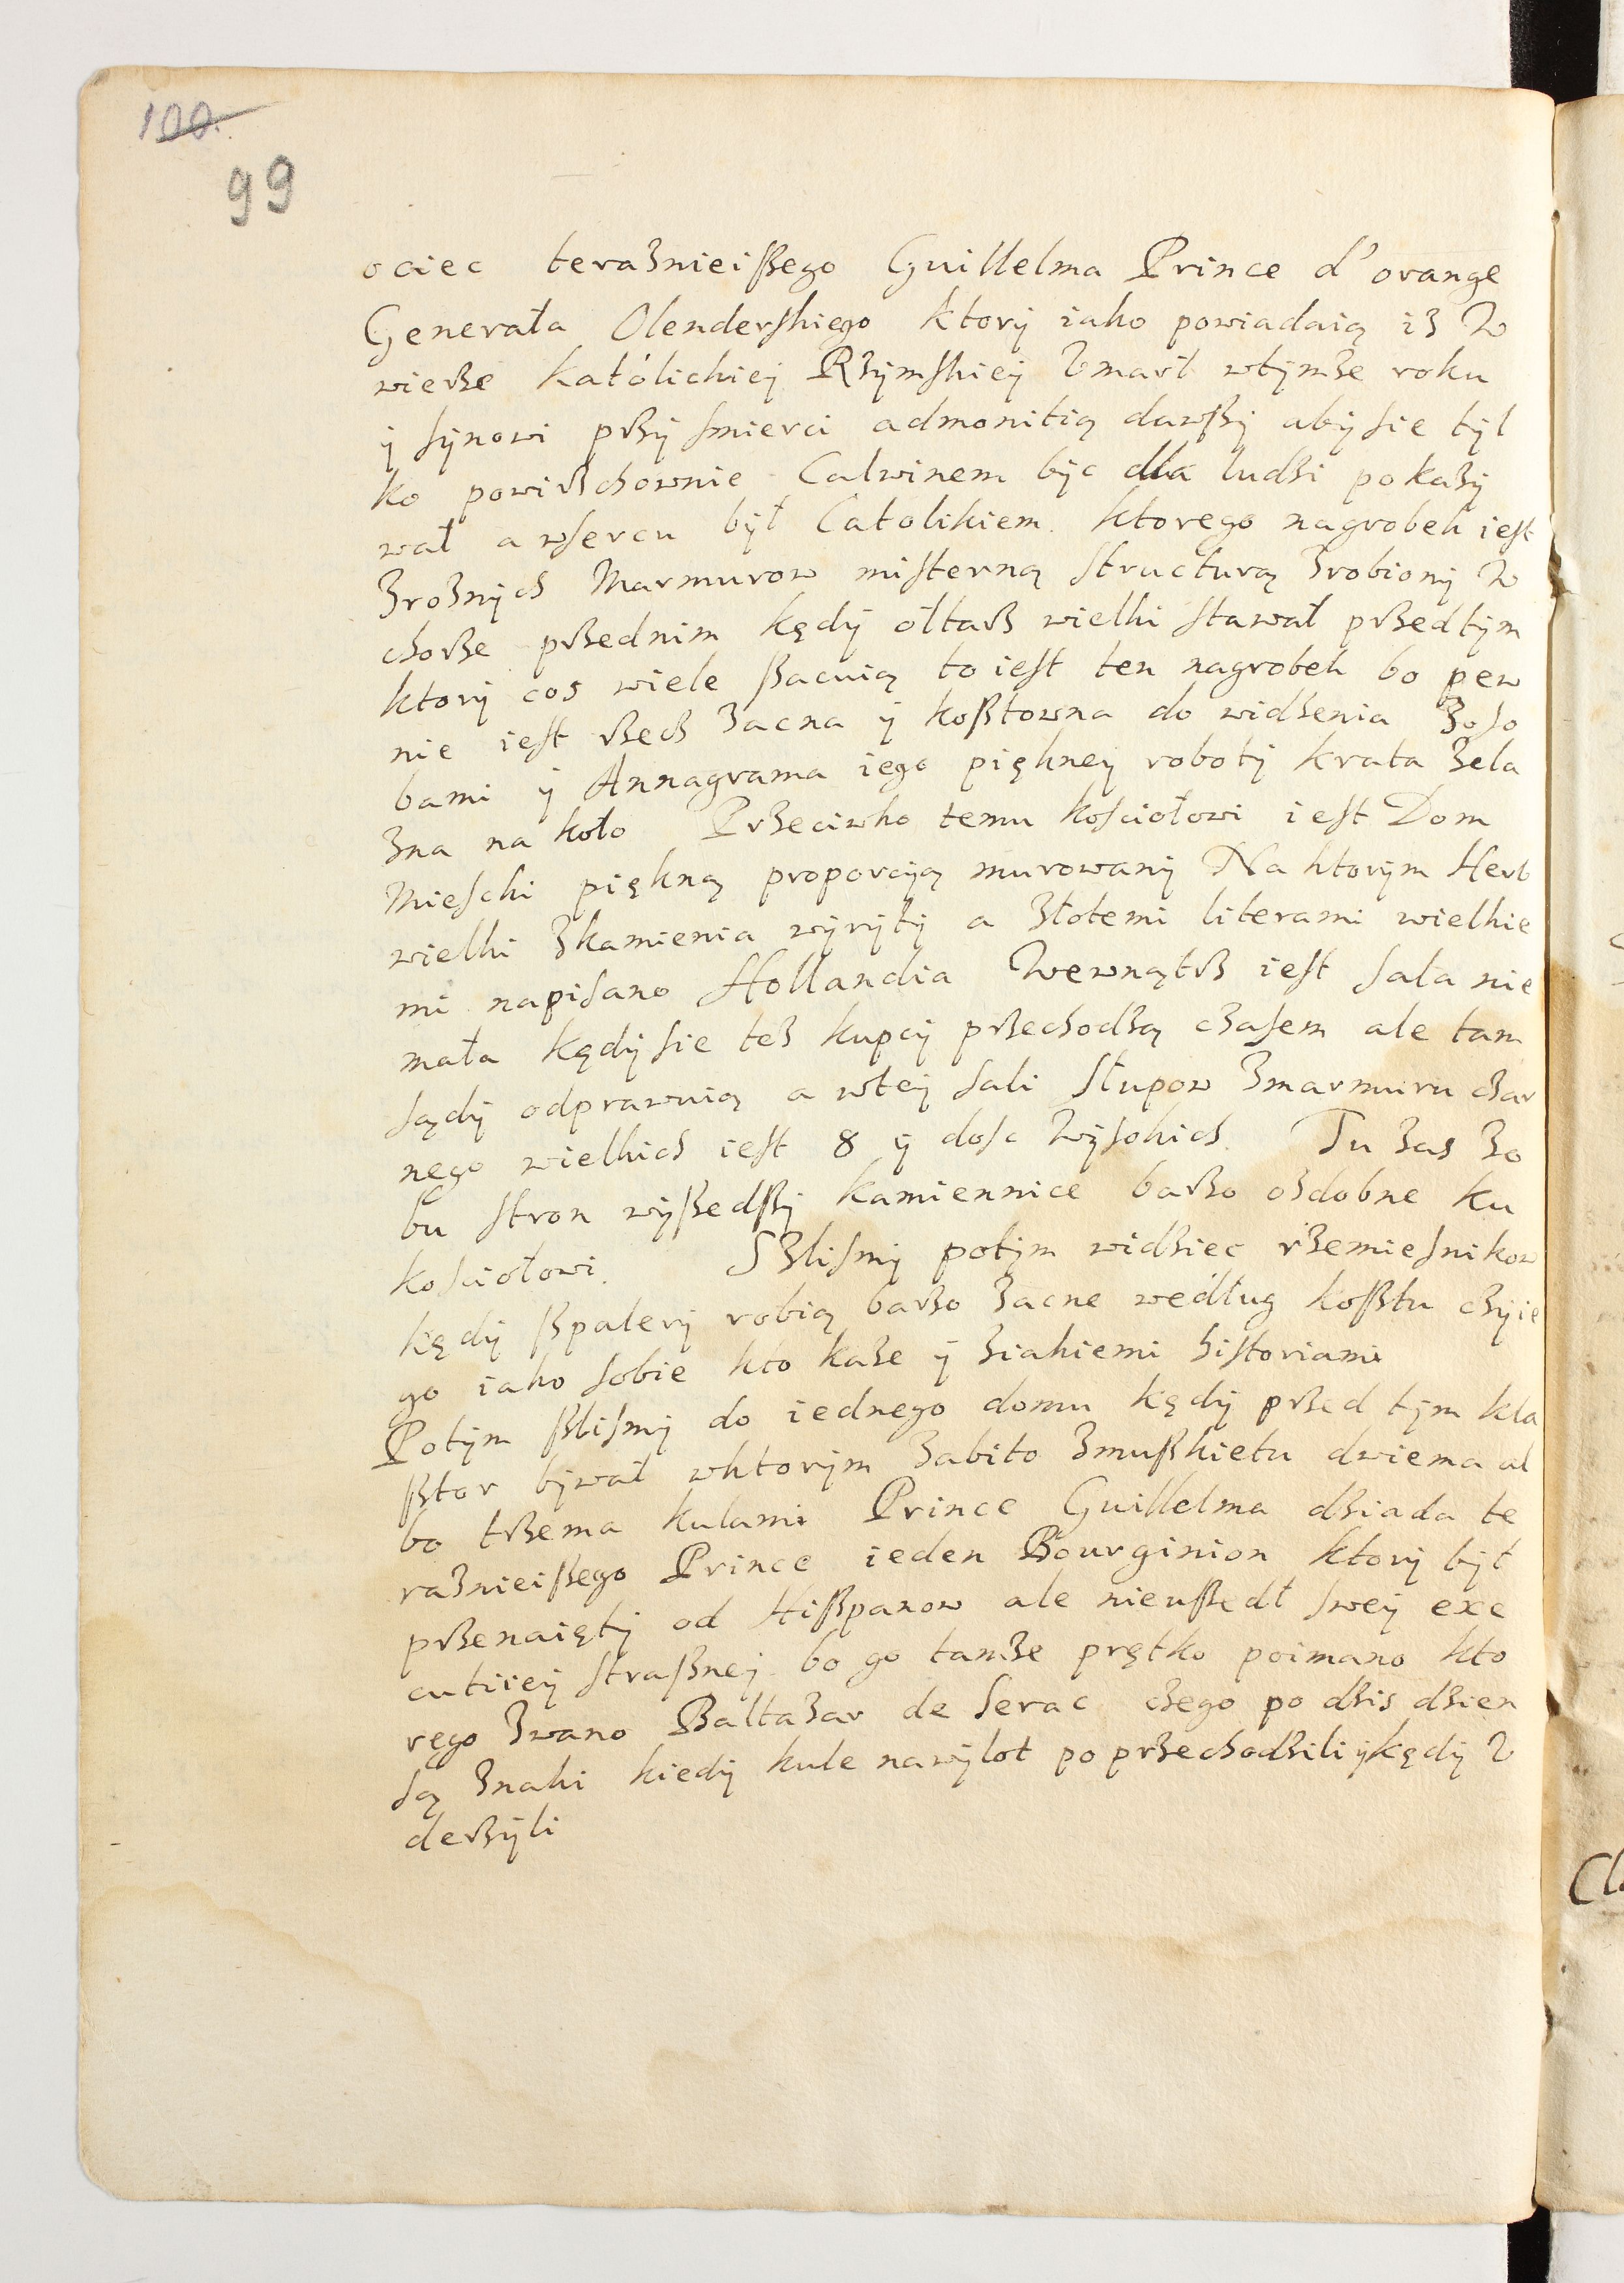 100.
99
ociec teraznieißego Guillelma Prince d'orange
Generała Olenderskiego ktory iako powiadaią iz w
wierze katolickiej Rzymskiey Vmarł wtymze roku
y synowi przy smierci admonitią dawszy aby sie tyl
ko powirzchownie Calwinem byc dla ludzi pokazy
wał a wsercu był Catolikiem. ktorego nagrobek iest
zroznych Marmurow misterną structurą zrobiony w
chorze przednim kędy ołtarz wielki stawał przedtym
ktory cos wiele ßacuią to iest ten nagrobek bo pew
nie iest rzecz zacna y koßtowna do widzenia zoso
bami y Annagrama iego piękney roboty krata zela
zna na koło Przeciwko temu kosciołowi iest Dom
Miescki piękną proporcyą murowany Na ktorym Herb
wielki zkamienia wyryty a złotemi literami wielkie
mi napisano Hollandia Wewnątrz iest sala nie
mała kędy sie tez kupcy przechodzą czasem ale tam
sądy odprawuią a wtey sali słupow zmarmuru czar
nego wielkich iest 8 y dosc wysokich. Tu zas zo
bu stron wyßedßy kamiennice barzo ozdobne ku
kosciołowi. Szlismy potym widziec rzemiesnikow
kędy ßpalery robią barzo zacne według koßtu czyie
go iako sobie kto kaze y ziakiemi historiami
Potym ßlismy do iednego domu kędy przed tym kla
ßtor bywał wktorym zabito zmußkietu dwiema al
bo trzema kulami Prince Guillelma dziada te
raznieißego Prince ieden Bourginion ktory był
przenaięty od Hißpanow ale nieußedł swey exe
cutiiey straßney. bo go tamze prętko poimano kto
rego zwano Baltazar de Serac czego po dzis dzien
są znaki kiedy kule nawylot poprzechodzili y kędy v
derzyli
Cl